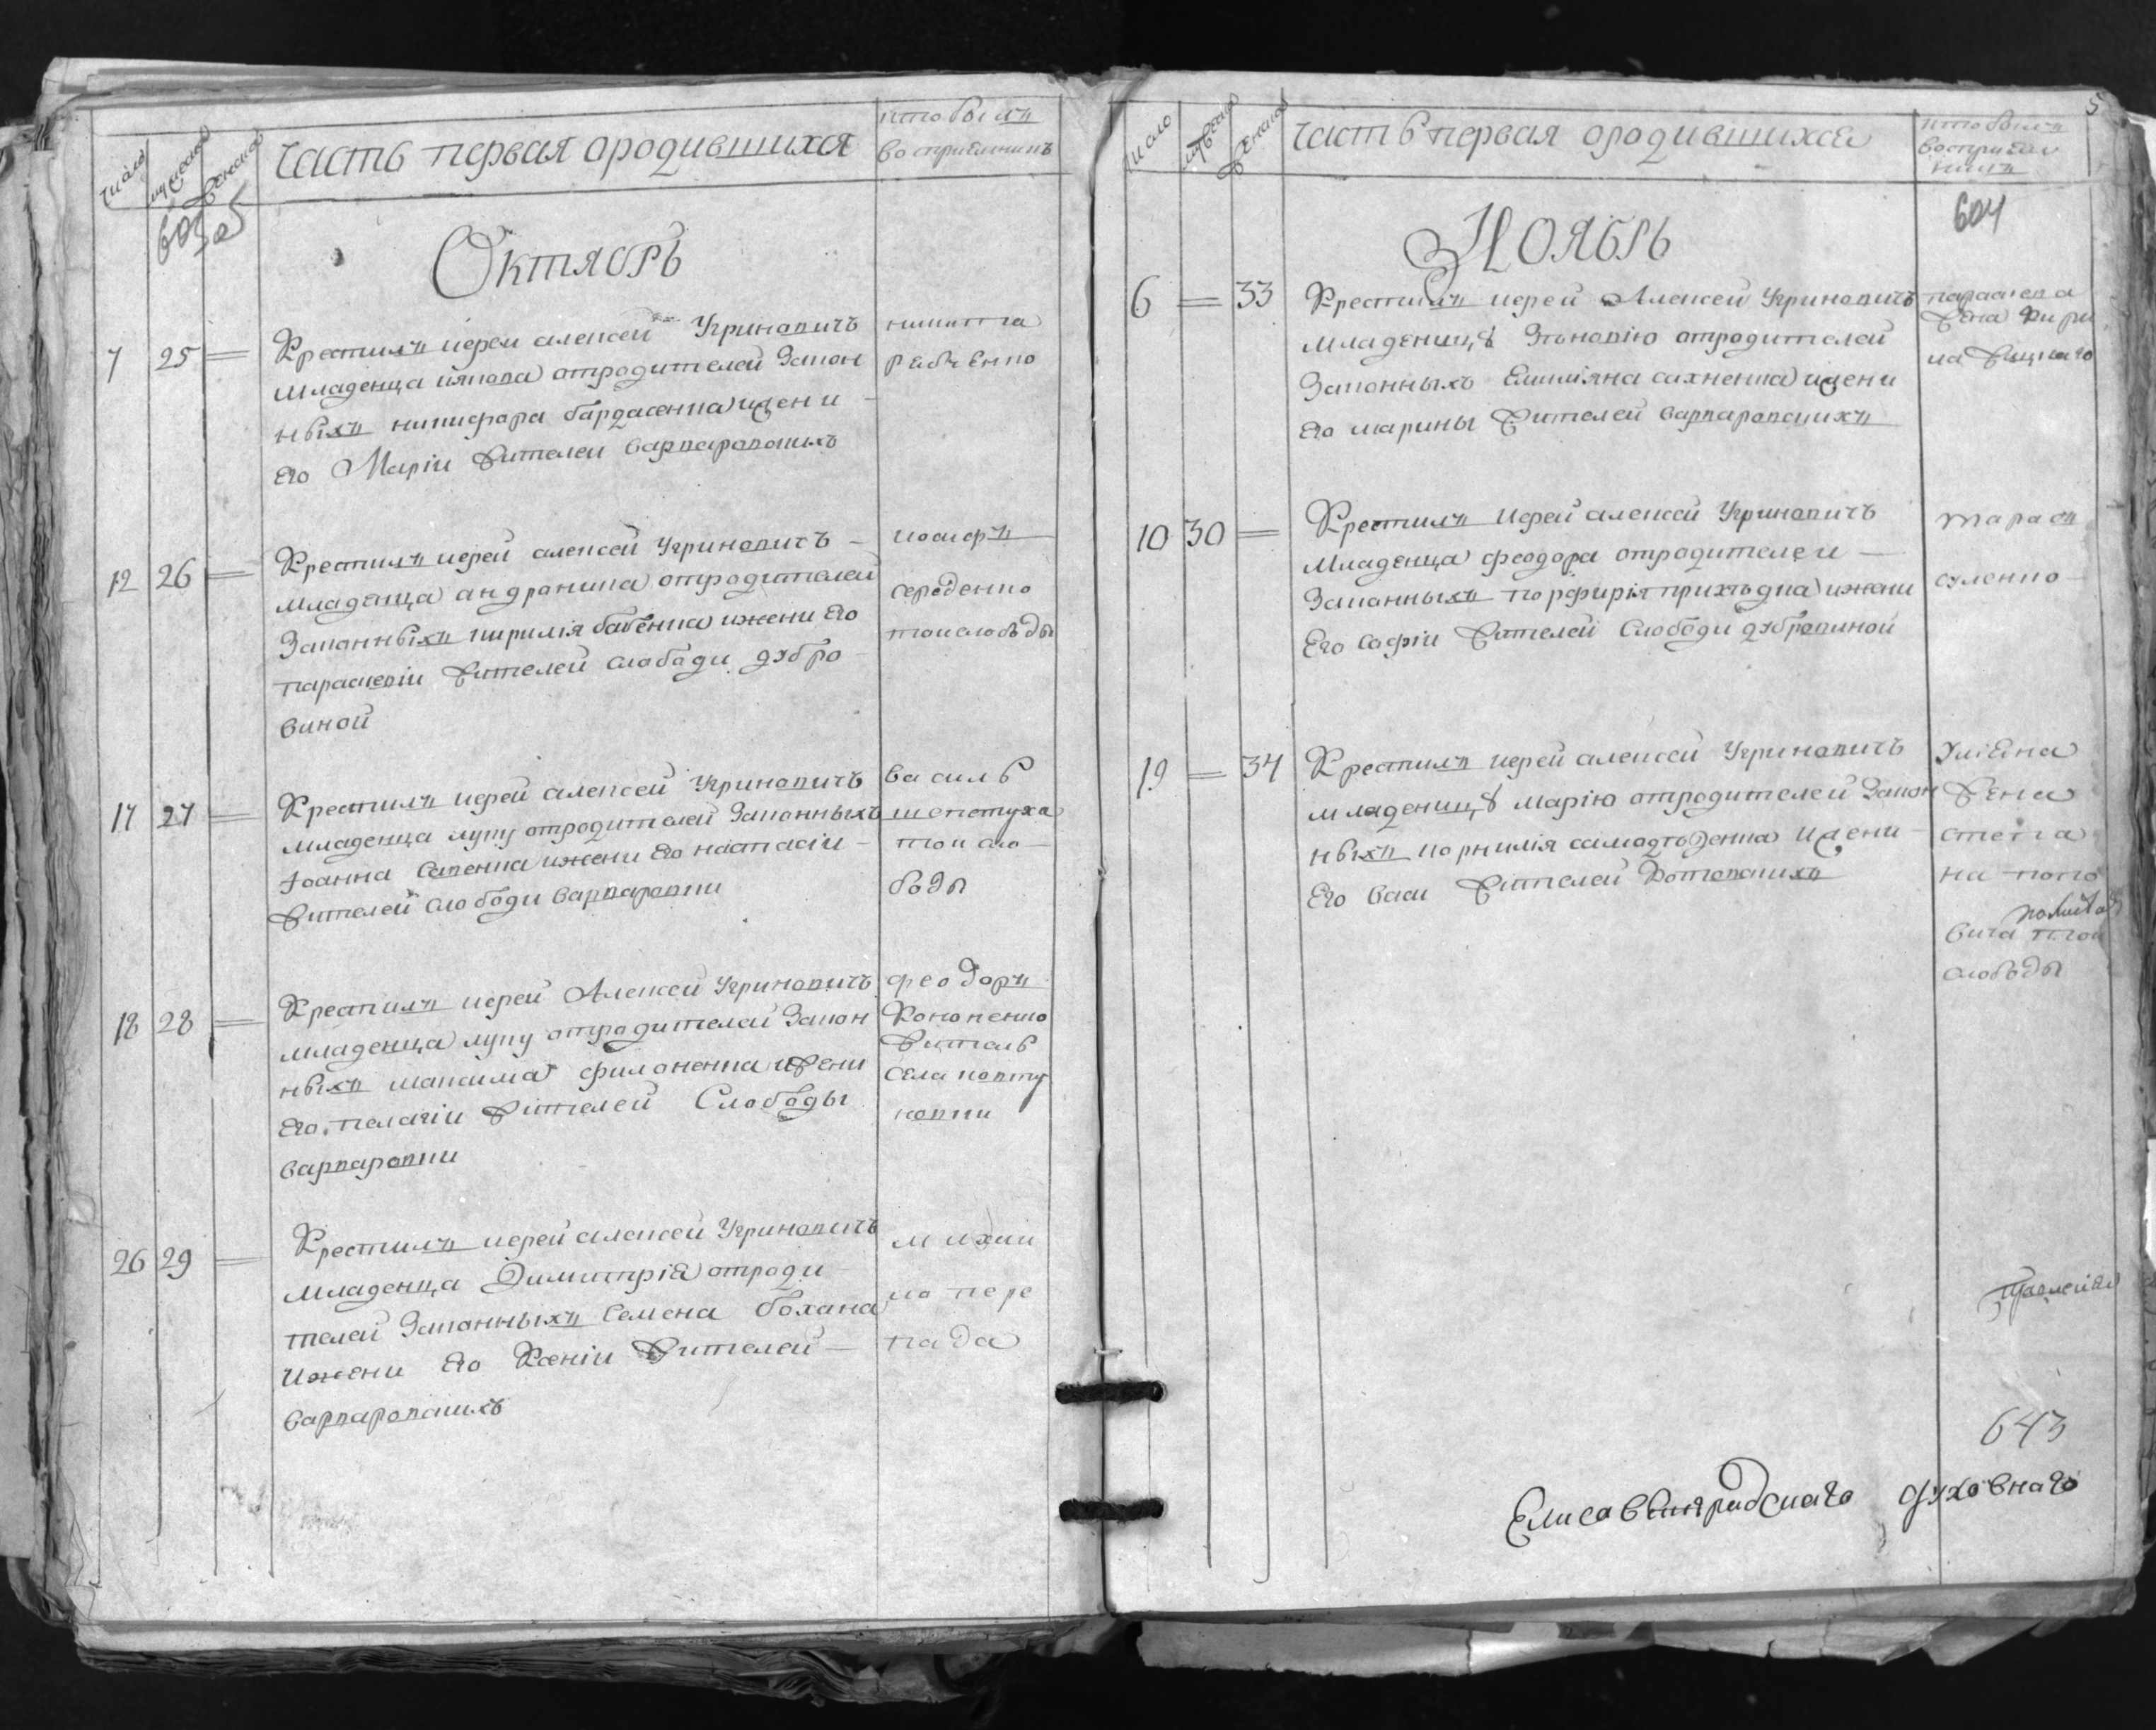 Число
мужеска
женска
Часть первая ородившихся
кто былъ
воспріемникъ
603 об
Октябрь
7 25 =
Крестилъ иерей алексей Угриновичъ
младенца иякова отродителей Закон
ныхъ никифора бардасенка ижени
Его Маріи жителей варваровскихъ
никита
рабченко
12 26 =
Крестилъ иерей алексей Угриновичъ
младенца андроника отродителей
Законныхъ кирилія бабенка ижени Его
параскевіи жителей слободи дубро
виной
иосифъ
середенко
тоислободы
17 27 =
Крестилъ иерей алексей Угриновичъ
младенца лупу отродителей Законныхъ
Іоанна Савенка ижени Его настасіи
жителей слободи варваровки
василь
шепотуха
той сло
боды
18 28 =
Крестилъ иерей Алексей Угриновичъ
младенца лупу отродителей Закон
ныхъ максима филоненка ижени
Его пелагіи жителей Слободы
варваровки
феодоръ
Кононенко
житель
села
26 29 =
Крестилъ иерей алексей Угриновичъ
младенца Димитрія отроди
телей Законныхъ Семена бохана
ижени Его Ксеніи жителей
варваровскихъ
михаи
ло пере
пада
5
Число
мужеска
женска
Часть первая ородившихся
кто былъ
воспріем
никъ
604
Ноябрь
6 = 33
Крестилъ иерей Алексей Угриновичъ
младеницу отродителей
Законныхъ Емилияна сахненка ижени
Его марины жителей варваровскихъ
параскева
жена Кири
ла
10 30 =
Крестилъ Иерей алексей Угриновичъ
младенца феодора отродителей
Законныхъ порфирія приходка ижени
Его Софіи жителей Слободи дубровиной
тарасъ
суленко
19 = 34
Крестилъ иерей алексей Угриновичъ
младеницу марію отродителей Закон
ныхъ корнилія самодъ ижени
Его Васи жителей Котовскихъ
Уліена
жена
степа
на попо
вича той
слободы
643
Елисаветградскаго духовнаго